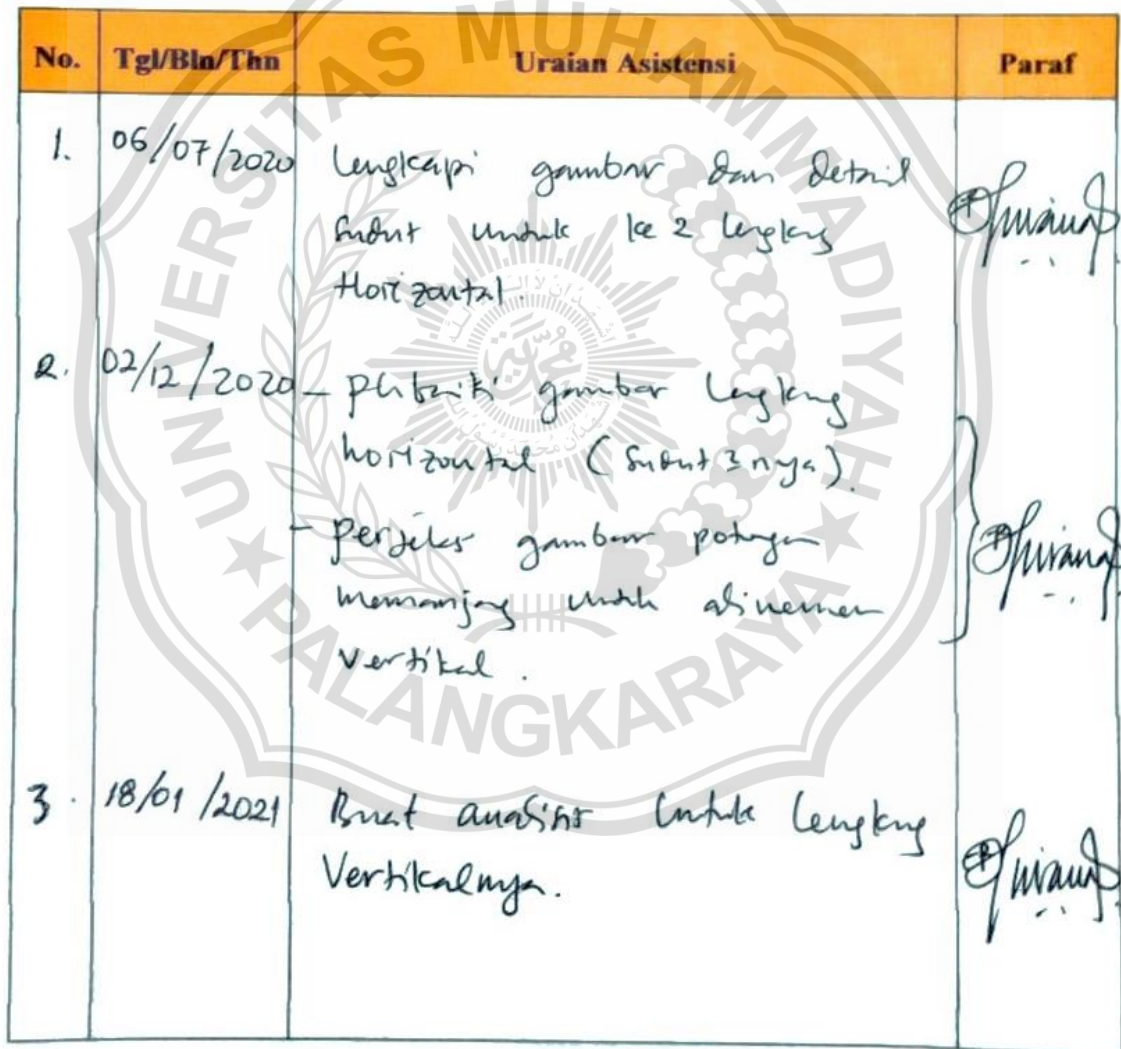 No. Tgl/Bln/Thn Uraian Asistensi Paraf
1. 06/07/2020 Lengkapi gambar dan detail
sudut untuk ke 2 lengkung
Horizontal.
2. 02/12/2020 – perbaiki gambar lengkung
horizontal (sudut 3nya).
– perjelas gambar potongan
memanjang untuk alinemen
vertikal.
3. 18/01/2021 Buat analisis untuk lengkung
Vertikalnya.
UNIVERSITAS MUHAMMADIYAH
PALANGKARAYA